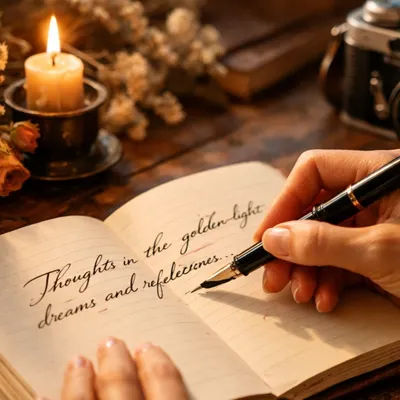 Thoughts in the golden-light
dreams and refelecrnes...